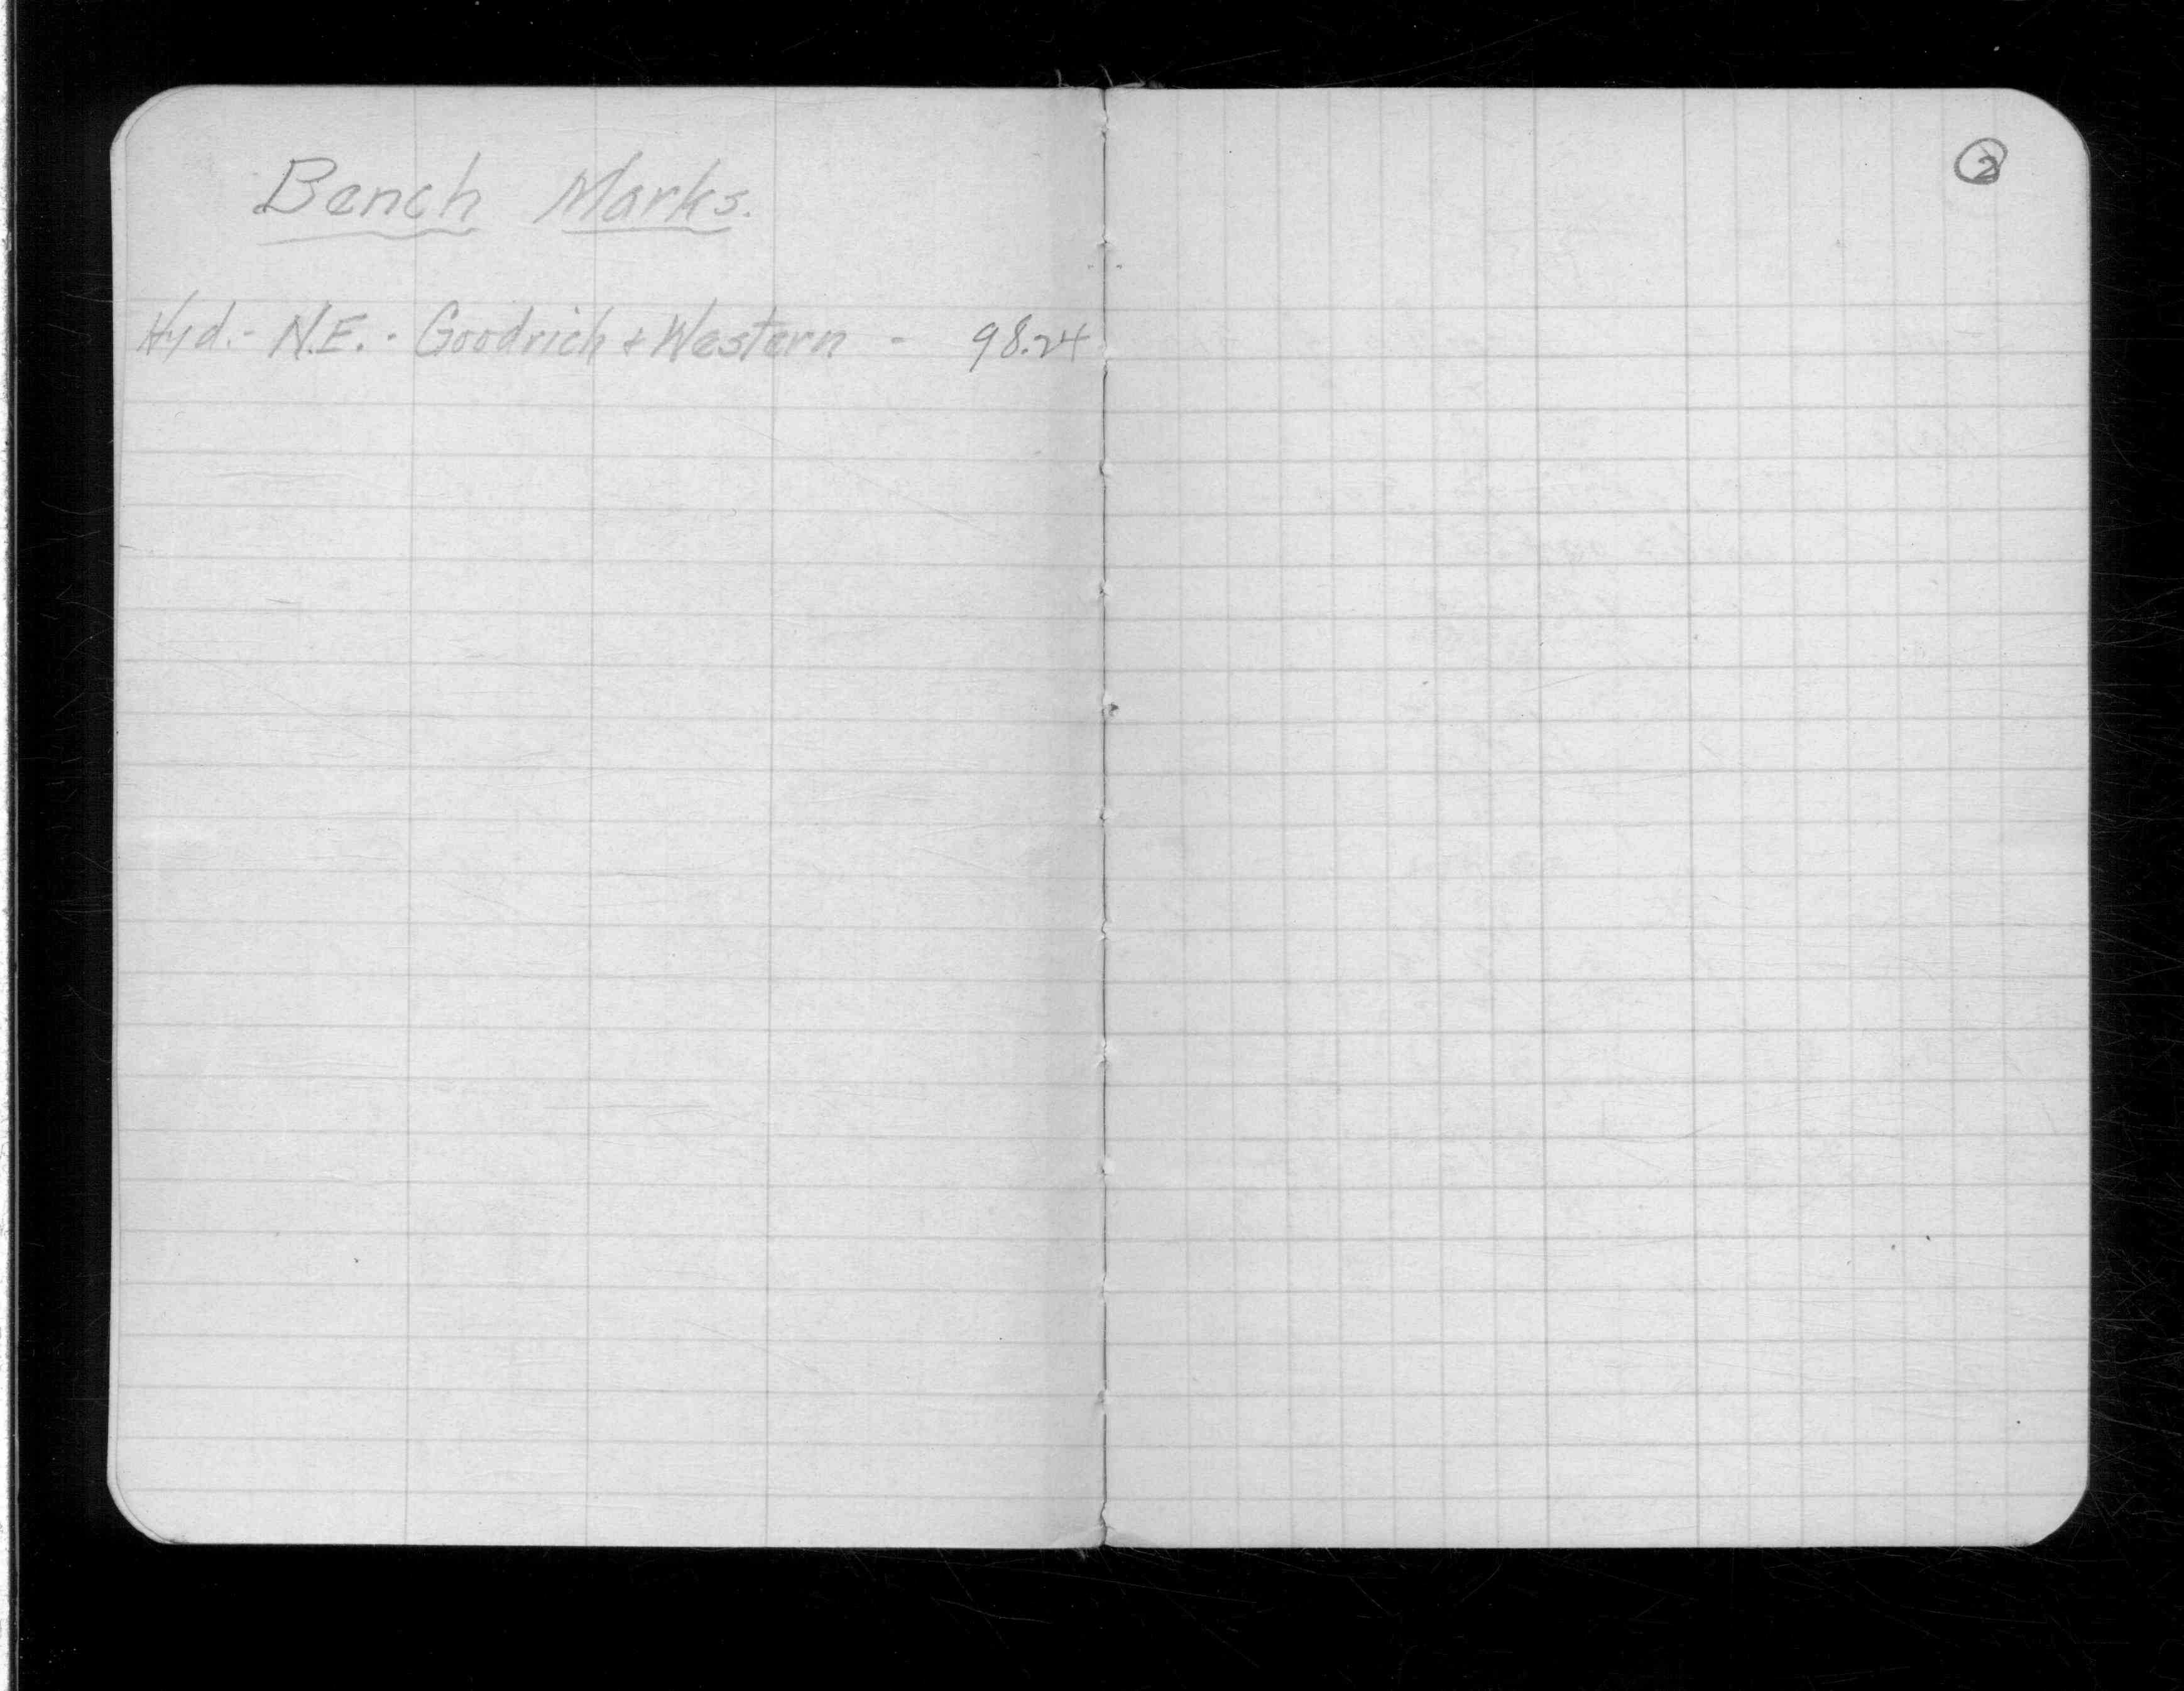 Bench Marks.
Hyd.- N.E. - Goodrich + Western - 98.24
2